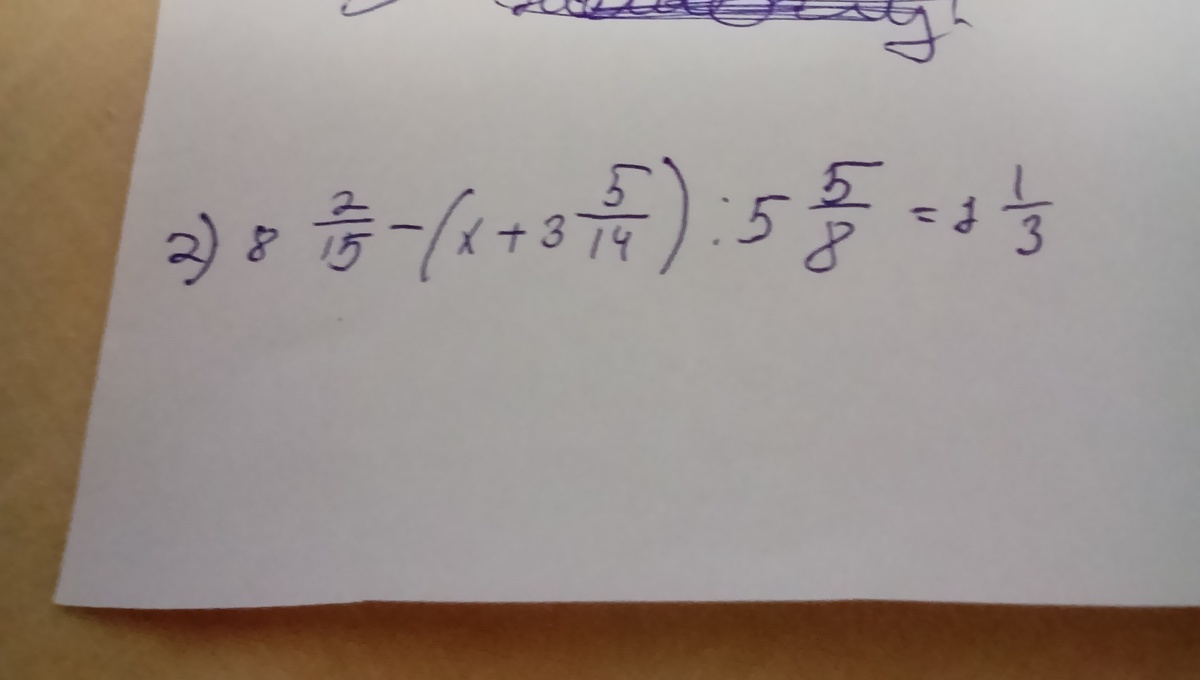 2) 8 2/15 - (x + 3 5/14) : 5 5/8 = 1 1/3